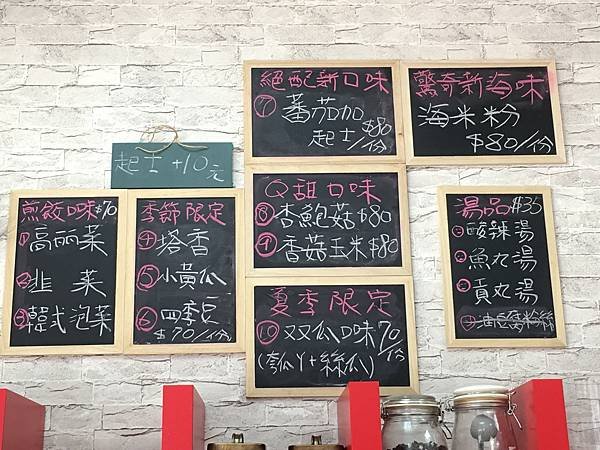 絕配新口味
⑦蕃茄加
起士$80/份
驚奇新海味!
海米粉
$80/份
起士+10元
煎餃口味$70
①高麗菜
②韭菜
③韓式泡菜
季節限定
④塔香
⑤小黃瓜
⑥四季豆
$70/份
Q甜口味
⑧杏鮑菇$80
⑨香菇玉米$80
夏季限定
⑩双瓜口味70/份
(瓠ㄚ+絲瓜)
湯品$35
㊀酸辣湯
㊁魚丸湯
㊂貢丸湯